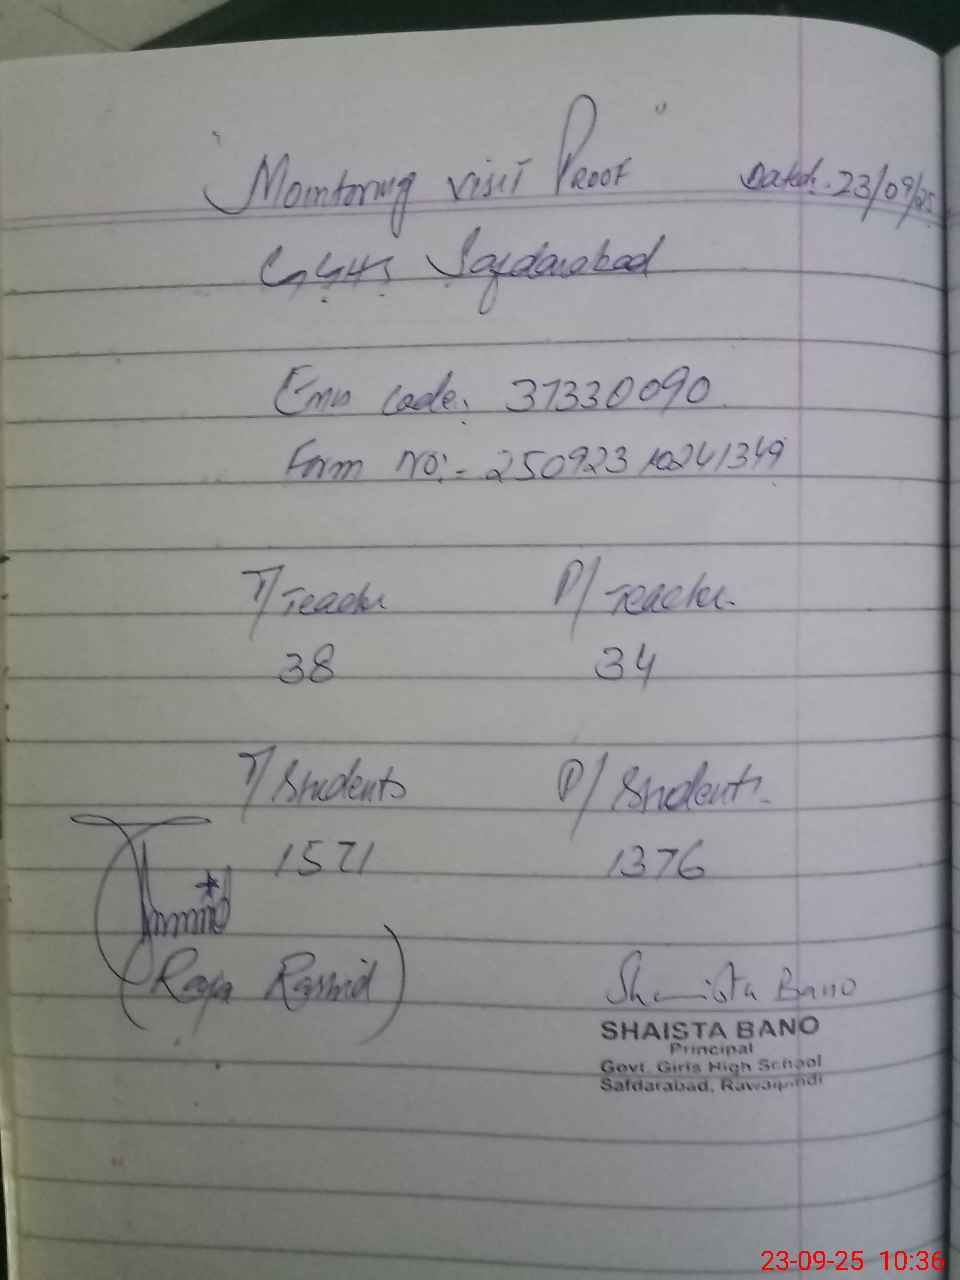 "Monitoring visit Proof" Dated:. 23/09/25
GGHS Safdarabad
Emis code: 37330090
Form no:- 250923 10241349
T/Teacher P/Teacher.
38 34
T/Students P/Students.
1571 1376
(Raja Rashid) Shaista Bano
SHAISTA BANO
Principal
Govt. Girls High School
Safdarabad, Rawalpindi
23-09-25 10:36